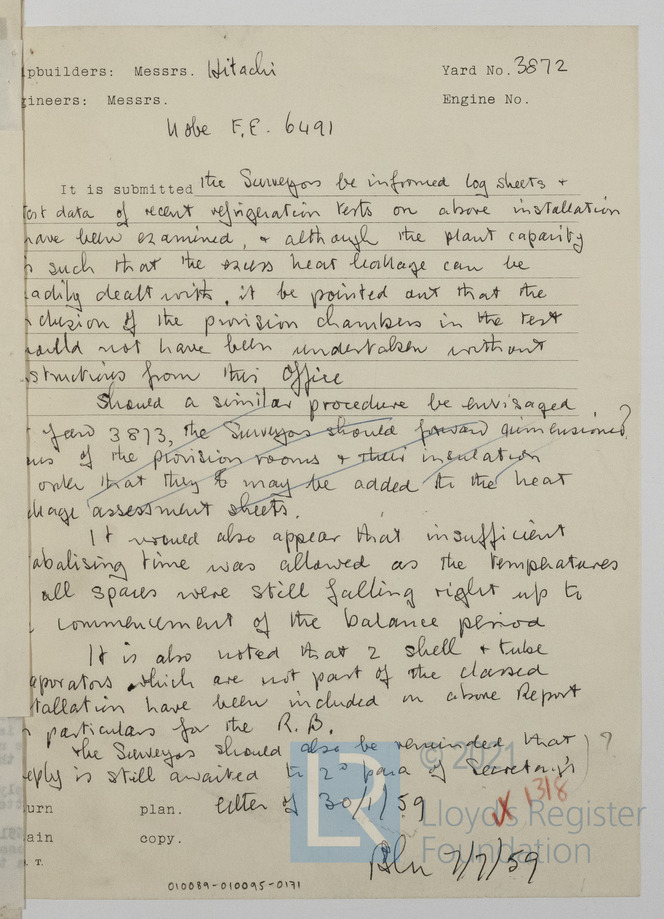 ipbuilders: Messrs. Hitachi Yard No. 3872
gineers: Messrs. Engine No.
Kobe F.E. 6491
It is submitted the Surveyors be informed log sheets +
test data of recent refrigeration tests on above installation
have been examined, + although the plant capacity
is such that the excess heat leakage can be
eadily dealt with, it be pointed out that the
clusion of the provision chambers in the test
would not have been undertaken without
structions from this Office
Should a similar procedure be envisaged
Yard 3873, the Surveyors should forward dimensioned ?
ans of the provision rooms + their insulation
order that they may be added to the heat
akage assessment sheets.
It would also appear that insufficient
abalising time was allowed as the temphatures
all spaces were still falling right up to
commencement of the balance period
It is also noted that 2 shell + tube
aporators which are not part of the classed
tallation have been included in above Report
particulars for the R.B.
the Surveyors should also be reminded that ) ?
eply is still awaited to 2º para of Secretary's
urn plan. letter of 30/1/59
ain copy.
. T.
1318
7/7/59
010089-010095-0171
© 2021
LR
Lloyd's Register
Foundation